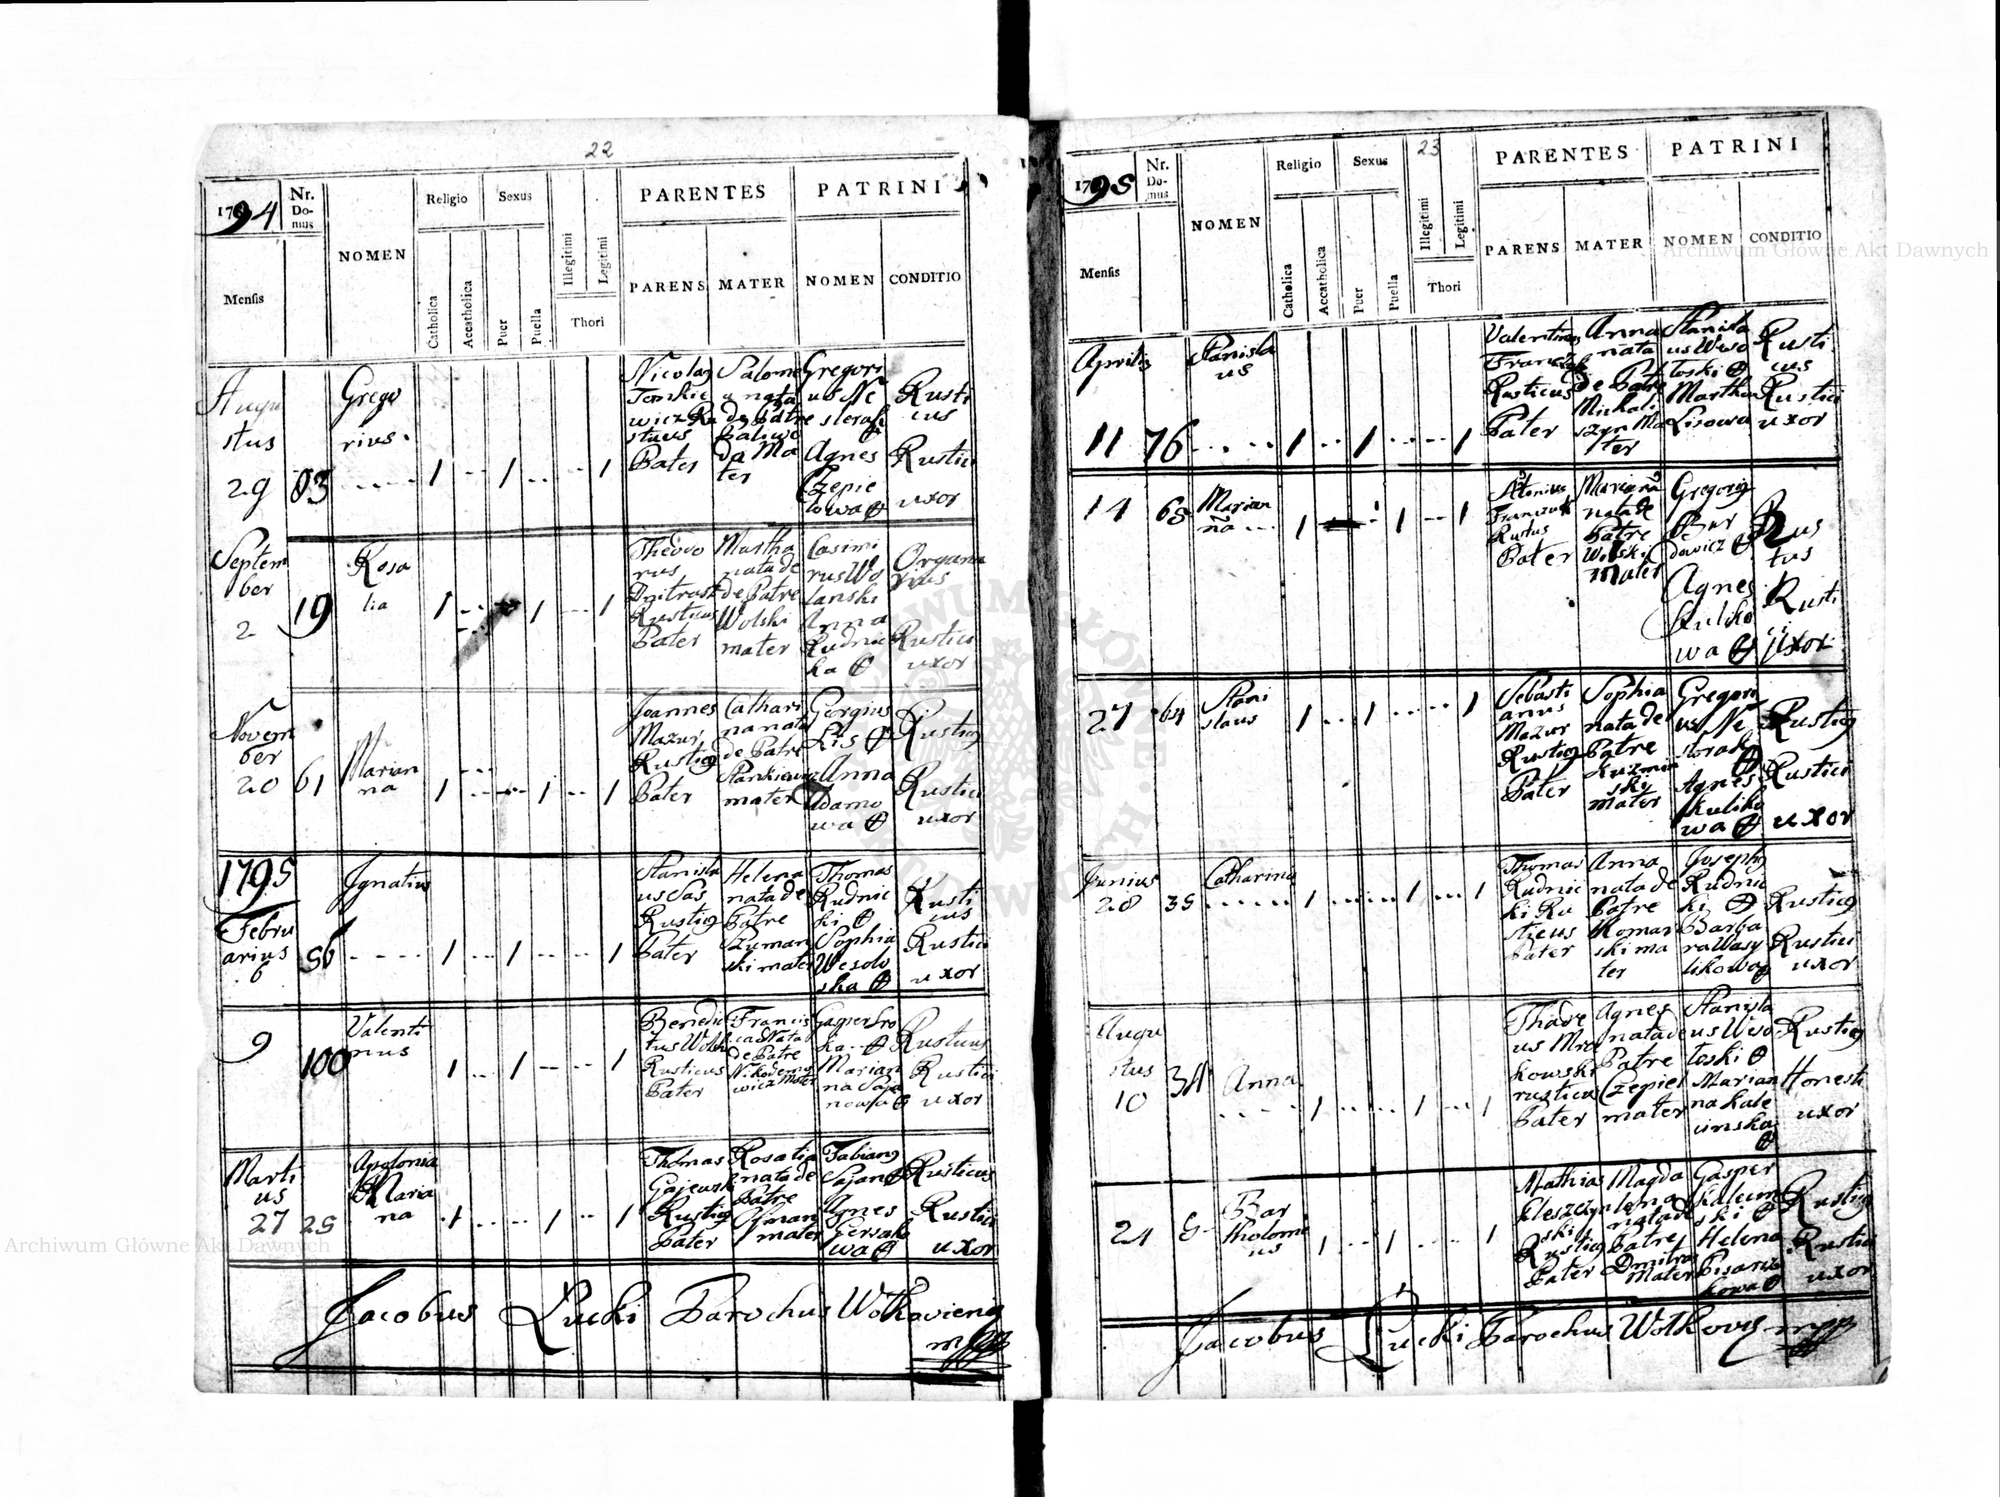 22
1794
Nr. Do-mus
NOMEN
Religio
Sexus
PARENTES
PATRINI
Mensis
Catholica
Accatholica
Puer
Puella
Illegitimi
Legitimi
Thori
PARENS
MATER
NOMEN
CONDITIO
Augu
stus
29
83
Grego
rius
Nicolaus
wicz Ru
sticus
Pater
Salome
a nata
de Patre
da Ma
ter
Gregori
us Ne
storak
Agnes
Czepie
lowa
Rusti
cus
Rustici
uxor
Septem
ber
2
19
Rosa
lia
Theodo
rus
Rusticus
Pater
Martha
nata de
de Patre
Wolski
mater
Casimi
rus Wo
lanski
Anna
Rudnic
ka
Rustici
uxor
Novem
ber
20
61
Marian
na
Joannes
Mazur
Rusticus
Pater
Cathari
na nata
de Patre
Stankiewicz
mater
Gorgius
Lis
Anna
Adamo
wa
Rusticus
Rustici
uxor
1795
Febru
arius
6
56
Ignatius
Stanisla
us Sas
Rusticus
Pater
Helena
nata de
Patre
Szuman
ski mater
Thomas
Rudnic
ki
Sophia
Wesolo
ska
Rusti
cus
Rustici
uxor
9
100
Valenti
nus
Benedic
tus Wolski
Rusticus
Pater
Francis
ca Nata
de Patre
Nikodemo
wicz Mater
Gasper Sro
ka
Marian
na Saja
nowa
Rusticus
Rustici
uxor
Marti
us
27
25
Apolonia
Maria
na
Thomas
Gajewski
Rusticus
Pater
Rosalia
nata de
Patre
mater
Fabianus
Sajan
Agnes
wa
Rusticus
Rustici
uxor
Jacobus Lucki Parochus Wolkoviensis
mpp
23
1795
Nr. Do-mus
NOMEN
Religio
Sexus
PARENTES
PATRINI
Mensis
Catholica
Accatholica
Puer
Puella
Illegitimi
Legitimi
Thori
PARENS
MATER
NOMEN
CONDITIO
Aprilis
11
76
Stanisla
us
Valentinus
Rusticus
Pater
Anna
nata
de Patre
Michali
szyn Ma
ter
Stanisla
us Weso
loski
Martha
Lisowa
Rusti
cus
Rustici
uxor
14
68
Marian
na
Antonius
Franczuk
Rustus
Pater
Mariana
nata de
Patre
Wolski
Mater
Gregorius
Bur
dowicz
Agnes
Kuliko
wa
Rus
tus
Rusti
ci
uxor
27
64
Stani
slaus
Sebasti
anus
Mazur
Rusticus
Pater
Sophia
nata de
Patre
Kuzmin
ski
mater
Gregori
us Ne
storak
Agnes
Kuliko
wa
Rusticus
Rustici
uxor
Junius
28
35
Catharina
Thomas
Rudnic
ki Ru
sticus
Pater
Anna
nata de
Patre
Komar
ski ma
ter
Josephus
Rudnic
ki
Barba
ra Wasy
likowa
Rusticus
Rustici
uxor
Augu
stus
10
34
Anna
Thade
us Mro
kowski
rusticus
Pater
Agnes
nata de
Patre
Czepiel
mater
Stanisla
us Weso
loski
Marian
na Kale
cinska
Rusticus
Honesti
uxor
Bar
tholome
us
Mathias
Kleszczyn
ski
Rusticus
Pater
Magda
lena
nata de
Patre
Mater
Gasper
ski
Helena
Pisarcz
kowa
Rusticus
Rustici
uxor
Jacobus Lucki Parochus Wolkovis mpp
Archiwum Główne Akt Dawnych
Archiwum Główne Akt Dawnych